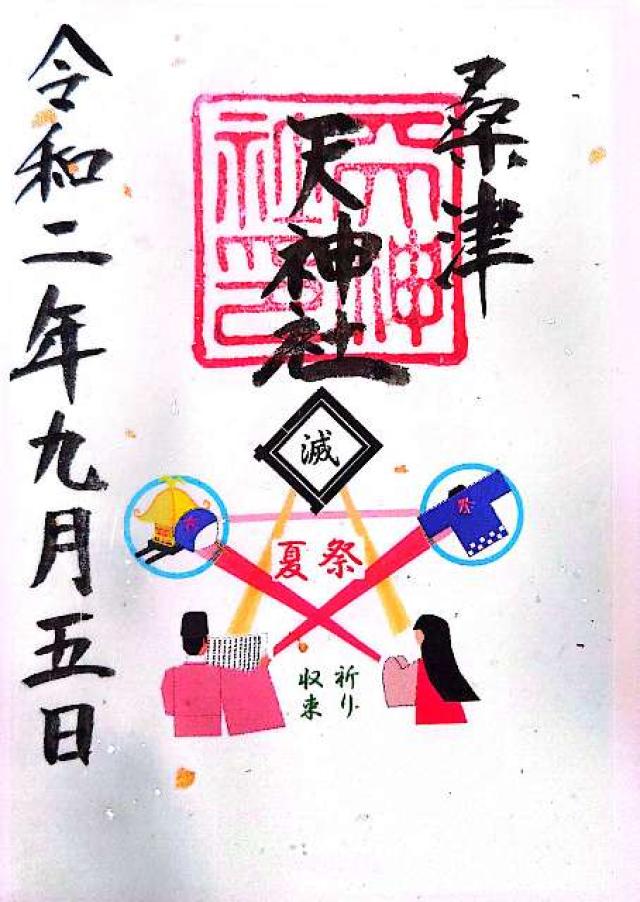 桑津
天神社
天神
社印
滅
夏祭
祈り
収束
令和二年九月五日